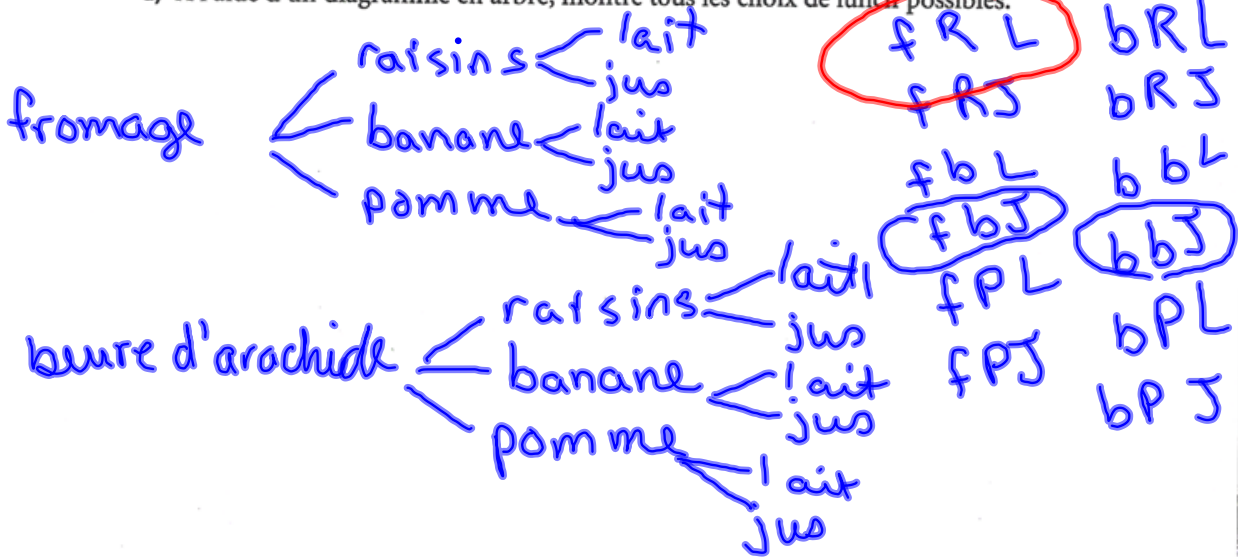 d'un diagramme en arbre, montre tous les choix de lunch possibles.
fromage
raisins
lait
jus
banane
lait
jus
pomme
lait
jus
beure d'arachide
raisins
lait
jus
banane
lait
jus
pomme
lait
jus
fRL
fRJ
fbL
fbJ
fPL
fPJ
bRL
bRJ
bbL
bbJ
bPL
bPJ